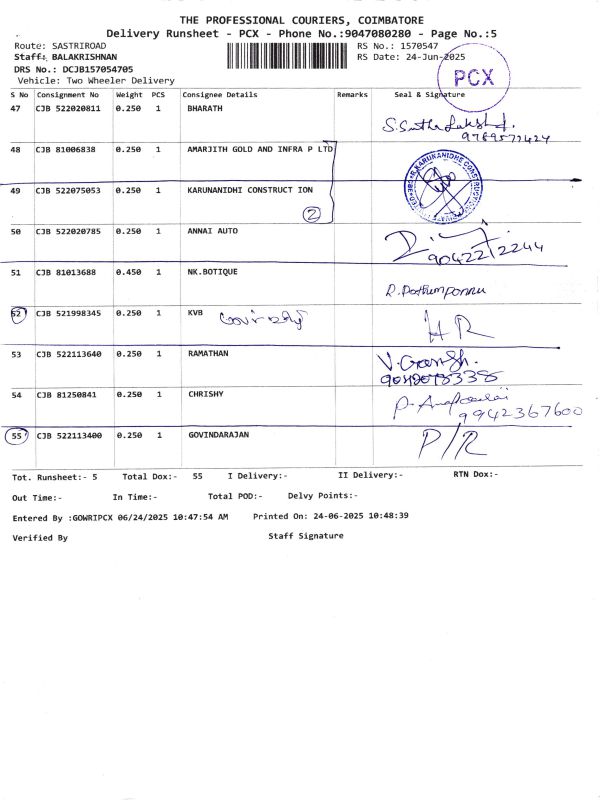 THE PROFESSIONAL COURIERS, COIMBATORE
Delivery Runsheet - PCX - Phone No.:9047080280 - Page No.:5
Route: SASTRIROAD RS No.: 1570547
Staff: BALAKRISHNAN RS Date: 24-Jun-2025
DRS No.: DCJB157054705
Vehicle: Two Wheeler Delivery
PCX
S No Consignment No Weight PCS Consignee Details Remarks Seal & Signature
47 CJB 522020811 0.250 1 BHARATH
48 CJB 81006838 0.250 1 AMARJITH GOLD AND INFRA P LTD
49 CJB 522075053 0.250 1 KARUNANIDHI CONSTRUCT ION
2
50 CJB 522020785 0.250 1 ANNAI AUTO
9042272244
51 CJB 81013688 0.450 1 NK.BOTIQUE
52 CJB 521998345 0.250 1 KVB HR
53 CJB 522113640 0.250 1 RAMATHAN
54 CJB 81250841 0.250 1 CHRISHY
9942367600
55 CJB 522113400 0.250 1 GOVINDARAJAN P/R
Tot. Runsheet:- 5 Total Dox:- 55 I Delivery:- II Delivery:- RTN Dox:-
Out Time:- In Time:- Total POD:- Delvy Points:-
Entered By :GOWRIPCX 06/24/2025 10:47:54 AM Printed On: 24-06-2025 10:48:39
Verified By Staff Signature